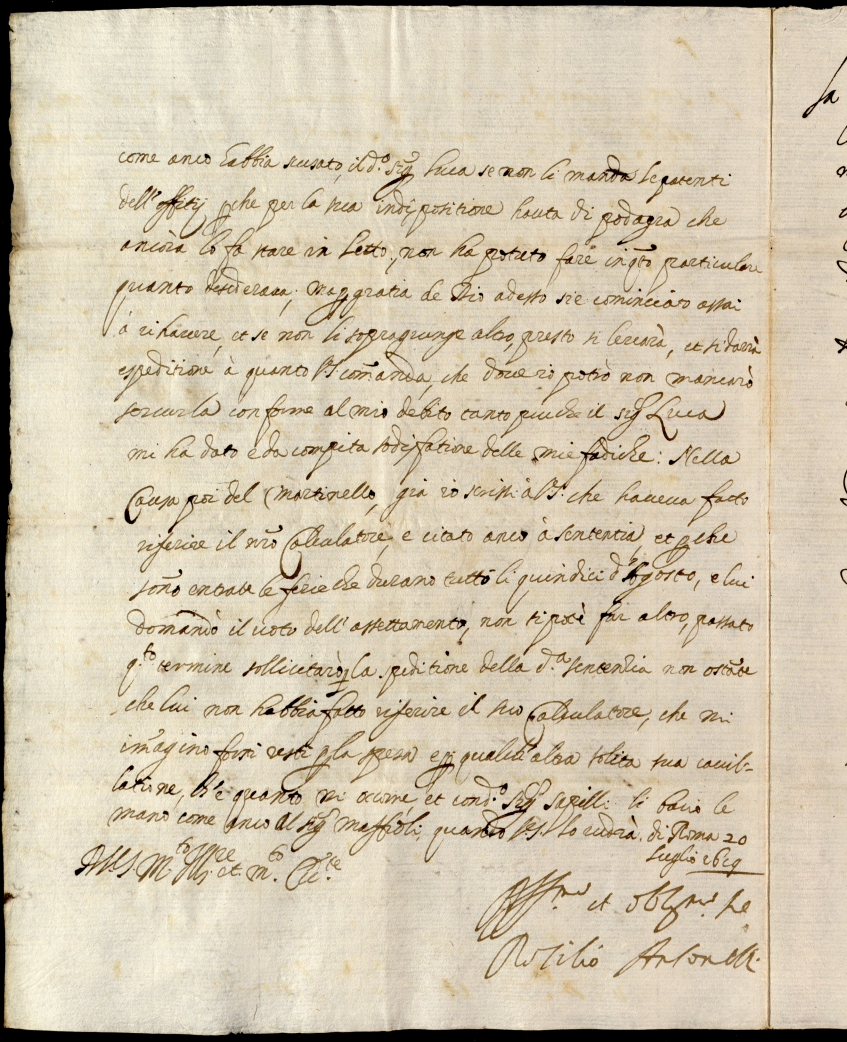 come anco habbia scusato, il d.º sig.r Luca se non li manda le patenti
dell'offitij p che per la sua indispositione hauta di podagra che
ancora lo fa stare in letto, non ha potuto fare in q.to particulare
quanto desideraua; ma p gratia de Dio adesso si è cominciato assai
à rihavere, et se non li sopragiunge altro, presto si leverà, et si darrà
espeditione à quanto V.S. comanda, che dove io potrò non mancarò
servirla conforme al mio debito tanto più che il sig.r Luca
mi ha dato e da compita sodisfatione delle mie fadiche: Nella
Causa poi del Martinello, già io scrissi à V.S. che haveva fatto
riferire il nro Calculatore, e citato anco à sententia, et p che
sono entrate le ferie che durano tutto li quindici d'Agosto, e lui
domandò il voto dell'assettamento, non si potè far altro, passato
q.to termine sollicitarò la speditione della d.ª sententia non ostãte
che lui non habbia fatto riferire il suo Calculatore, che mi
imagino resti p la spesa e p qualche altra solita sua cavil-
latione, ch'è quanto mi occorre, et con d.º sig.r li bacio le
mano come anco al sig.r Maffioli, quando V.S. lo vedrà. di Roma 20
Luglio
Di V.S. M.to Ill.re et m.to Ecc.te
Aff.mo et Obblig.mo se
Antonelli